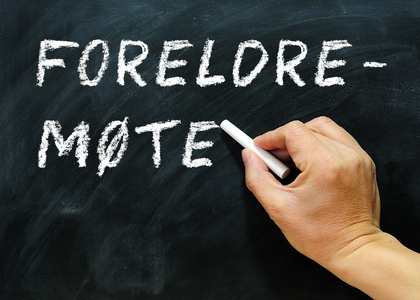 FORELDRE-
MØTE